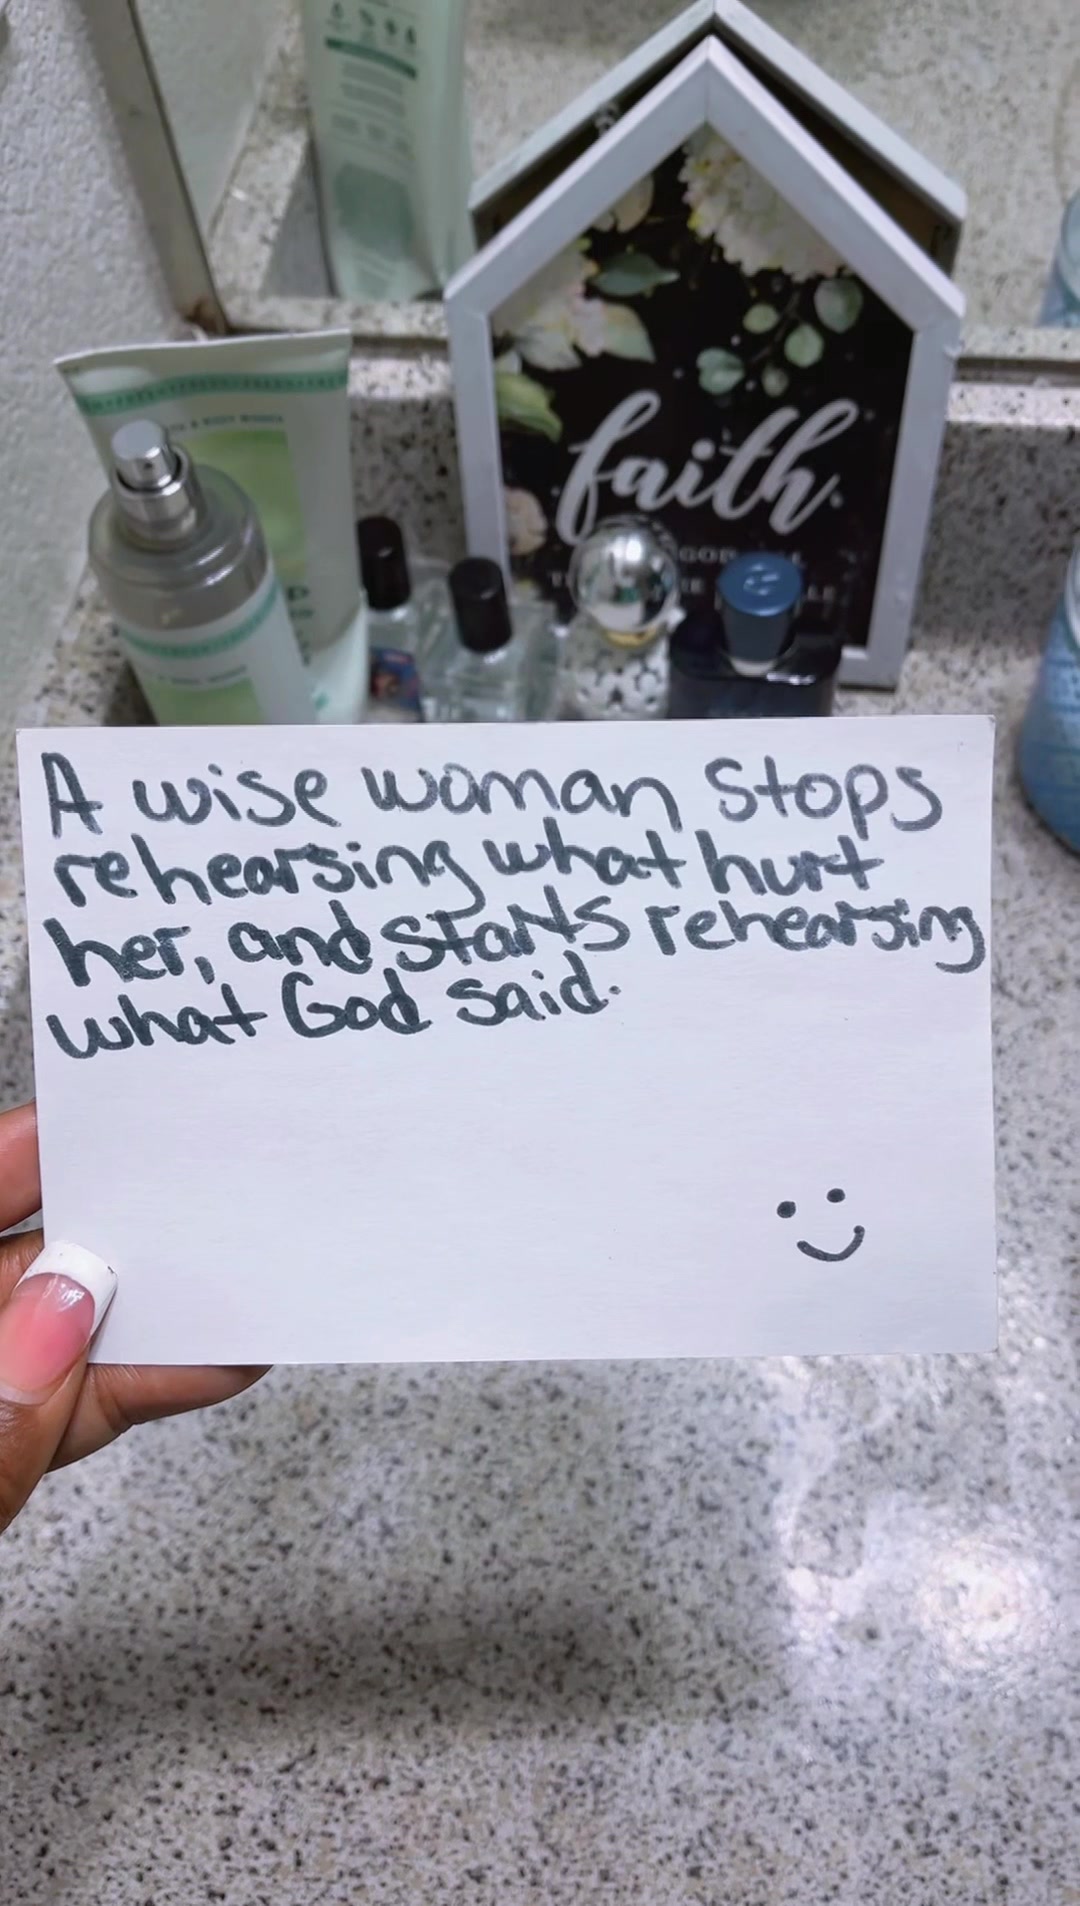 faith
GOD
A wise woman stops
rehearsing what hurt
her, and starts rehearsing
what God said.